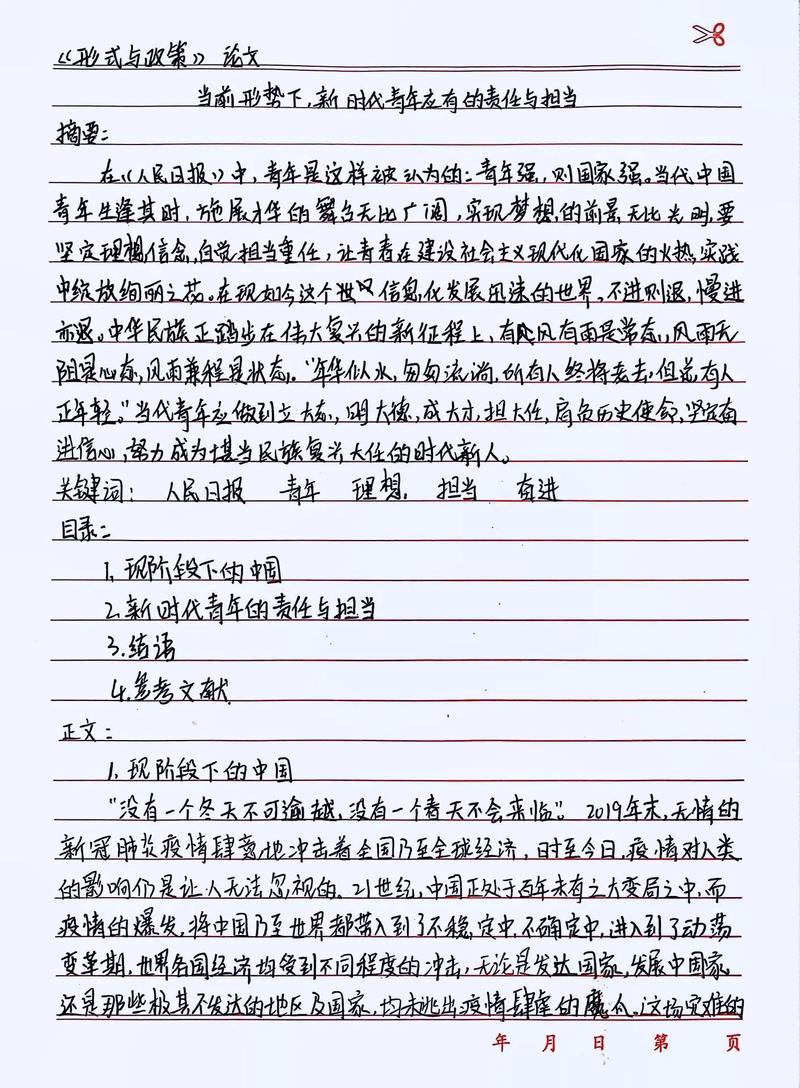 《形式与政策》论文
当前形势下,新时代青年应有的责任与担当
摘要:
在《人民日报》中,青年是这样被认为的:青年强,则国家强。当代中国
青年生逢其时,施展才华的舞台无比广阔,实现梦想的前景无比光明,要
坚定理想信念,自觉担当重任,让青春在建设社会主义现代化国家的火热实践
中绽放绚丽之花。在现如今这个世 信息化发展迅速的世界,不进则退,慢进
亦退。中华民族正踏步在伟大复兴的新征程上,有风有雨是常态,风雨无
阻是心态,风雨兼程是状态。“年华似水,匆匆流淌,所有人终将老去,但总有人
正年轻。”当代青年应做到立大志,明大德,成大才,担大任,肩负历史使命,坚定奋
进信心,努力成为堪当民族复兴大任的时代新人。
关键词: 人民日报 青年 理想 担当 奋进
目录:
1.现阶段下的中国
2.新时代青年的责任与担当
3.结语
4.参考文献
正文:
1.现阶段下的中国
“没有一个冬天不可逾越,没有一个春天不会来临”。2019年末,无情的
新冠肺炎疫情肆 地冲击着全国乃至全球经济,时至今日,疫情对人类
的影响仍是让人无法忽视的。21世纪,中国正处于百年未有之大变局之中,而
疫情的爆发,将中国乃至世界都带入到了不稳定中,不确定中,进入到了动荡
变革期,世界各国经济均受到不同程度的冲击,无论是发达国家,发展中国家
还是那些极其不发达的地区及国家,均未逃出疫情肆虐的魔爪。这场灾难的
年 月 日 第 页